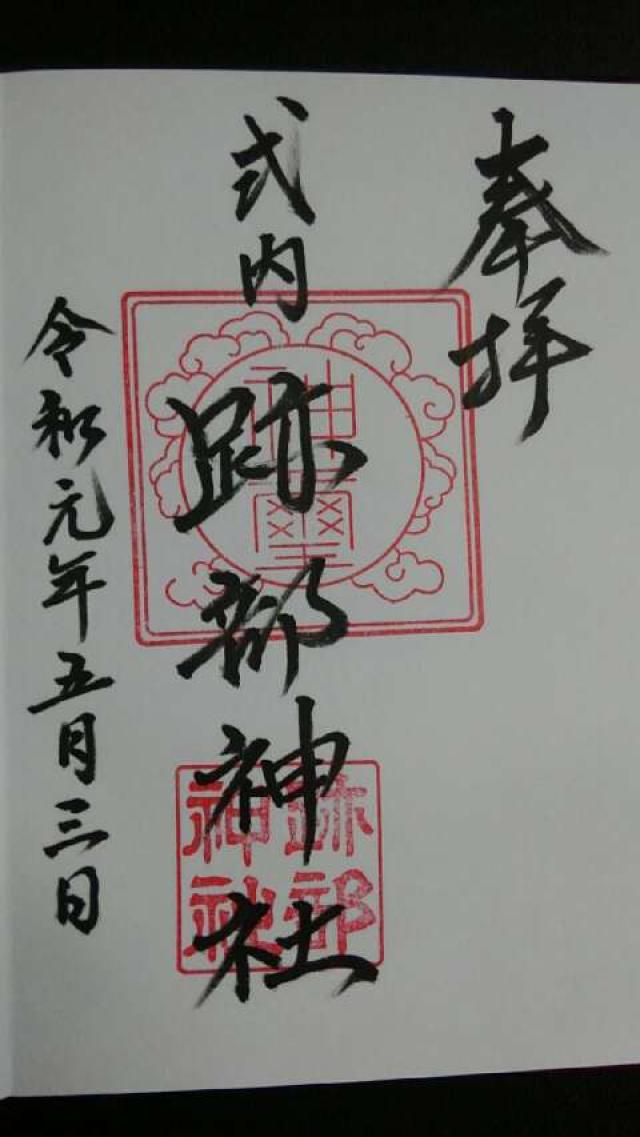 奉拝
式内
跡部神社
跡部
神社
令和元年五月三日